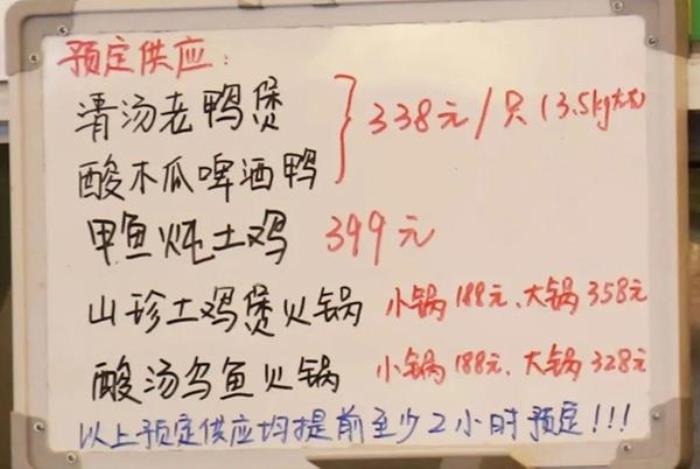 预定供应:
清汤老鸭煲
酸木瓜啤酒鸭
338元/只(3.5kg左右)
甲鱼炖土鸡 399元
山珍土鸡煲火锅 小锅188元、大锅358元
酸汤乌鱼火锅 小锅188元、大锅328元
以上预定供应均提前至少2小时预定!!!